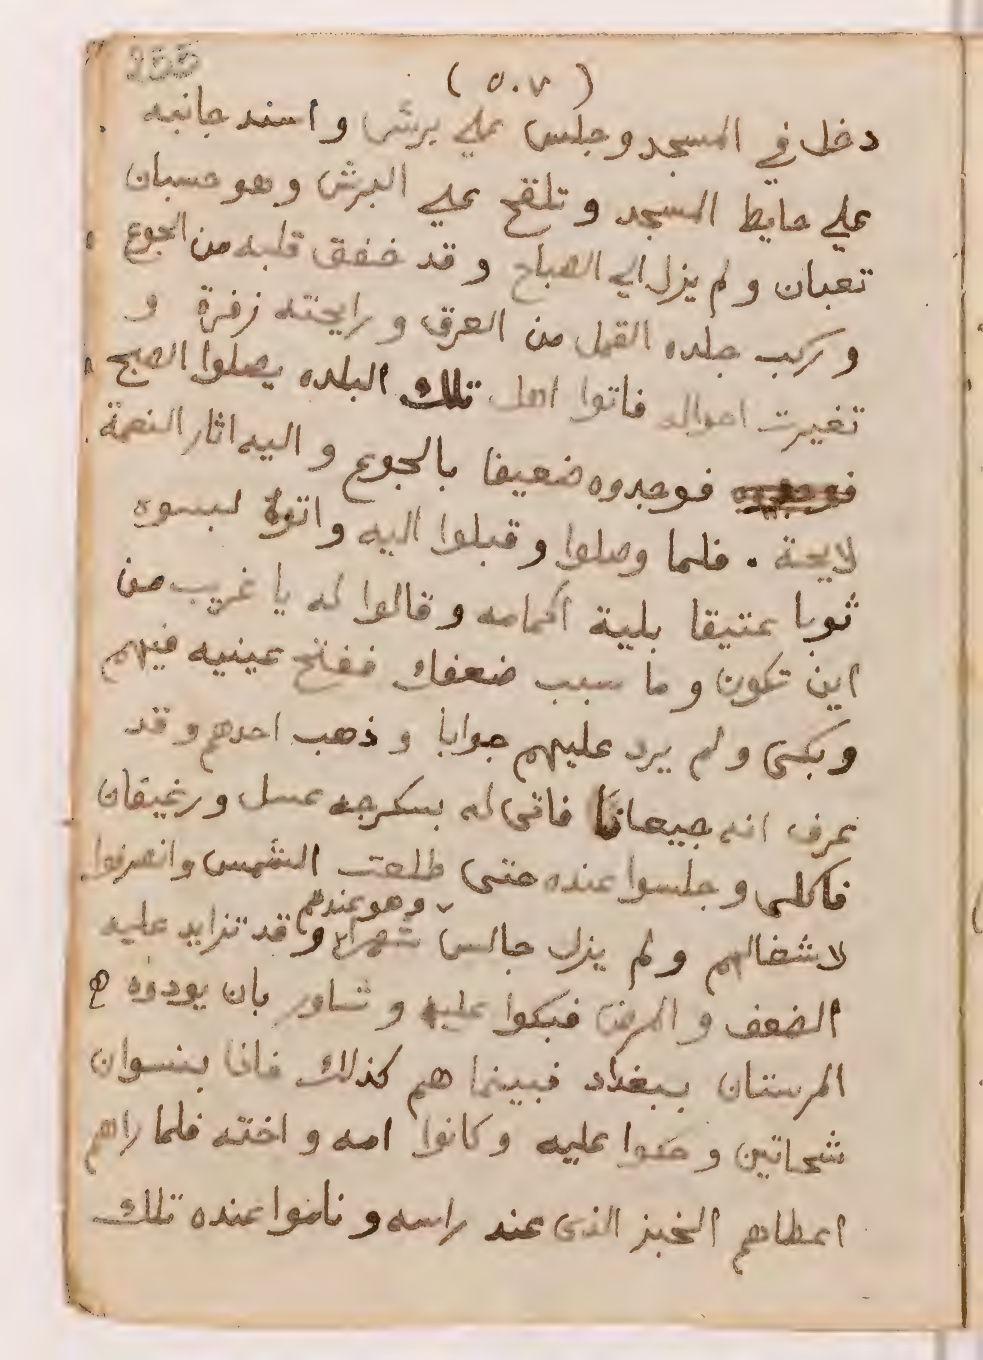 255
( ٥٠٧ )
دخل في المسجد وجلس علي برش واسند جانبه
علي حايط المسجد وتلقح علي البرش وهو حسبان
تعبان ولم يزل الي الصباح وقد خفق قلبه من الجوع
وركب جلده القمل من العرق ورايحته زفرة و
تغيرت احواله فاتوا اهل تلك البلده يصلوا الصبح
فوجدوه ضعيفا بالجوع واليه اثار النعمة
لايحة . فلما وصلوا وقبلوا اليه واتوا لبسوه
ثوبا عتيقا بلية اكمامه وقالوا له يا غريب من
اين تكون وما سبب ضعفك ففتح عينيه فيهم
وبكى ولم يرد عليهم جوابا وذهب احدهم وقد
عرف انه جيعانا فاتى له بسكرجه عسل ورغيفان
فاكلى وجلسوا عنده حتى طلعت الشمس وانصرفوا
لاشغالهم ولم يزل جالس شهرا وهو عندهم وقد تزايد عليه
الضعف والمرض فبكوا عليه وشاور بان يودوه
المرستان ببغداد فبينما هم كذلك فاذا بنسوان
شحاتين وحدوا عليه وكانوا امه واخته فلما راهم
اعطاهم الخبز الذى عند راسه وناموا عنده تلك